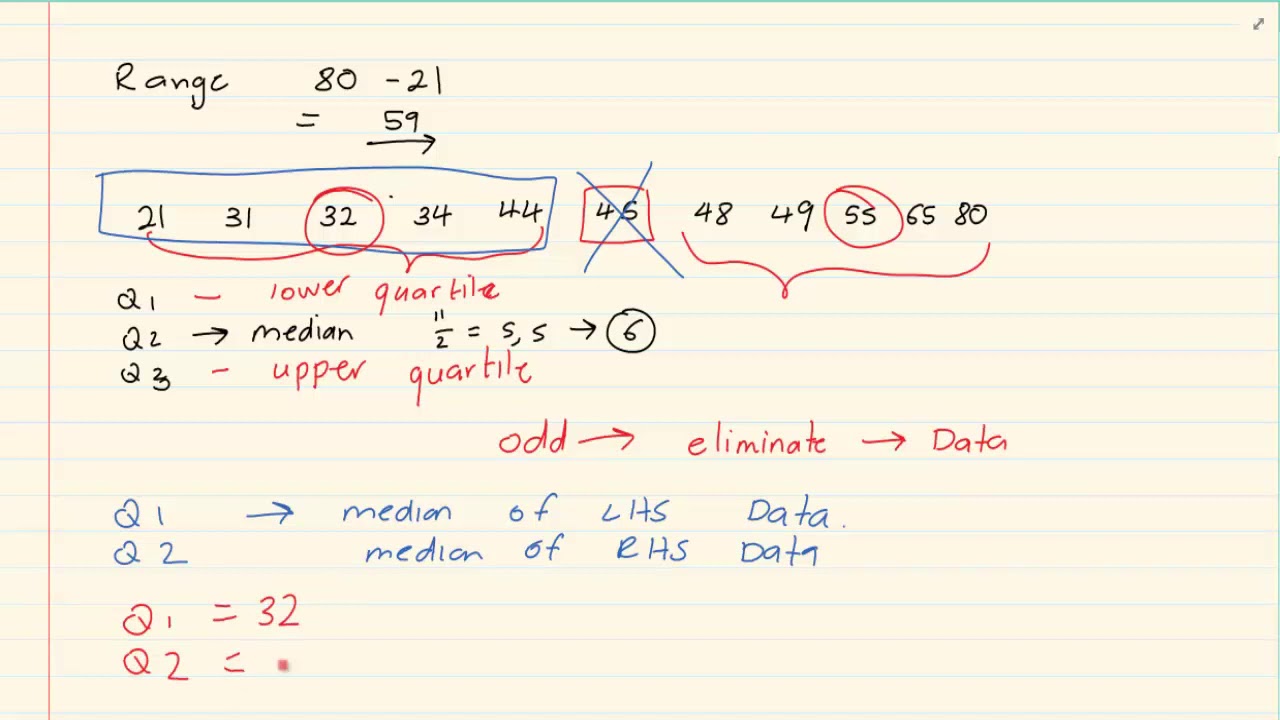 Range 80 - 21
= 59
21 31 32 34 44 45 48 49 55 65 80
Q1 - lower quartile
Q2 → median 11/2 = 5,5 → 6
Q3 - upper quartile
odd → eliminate → Data
Q1 → median of LHS Data.
Q2 median of RHS Data
Q1 = 32
Q2 =